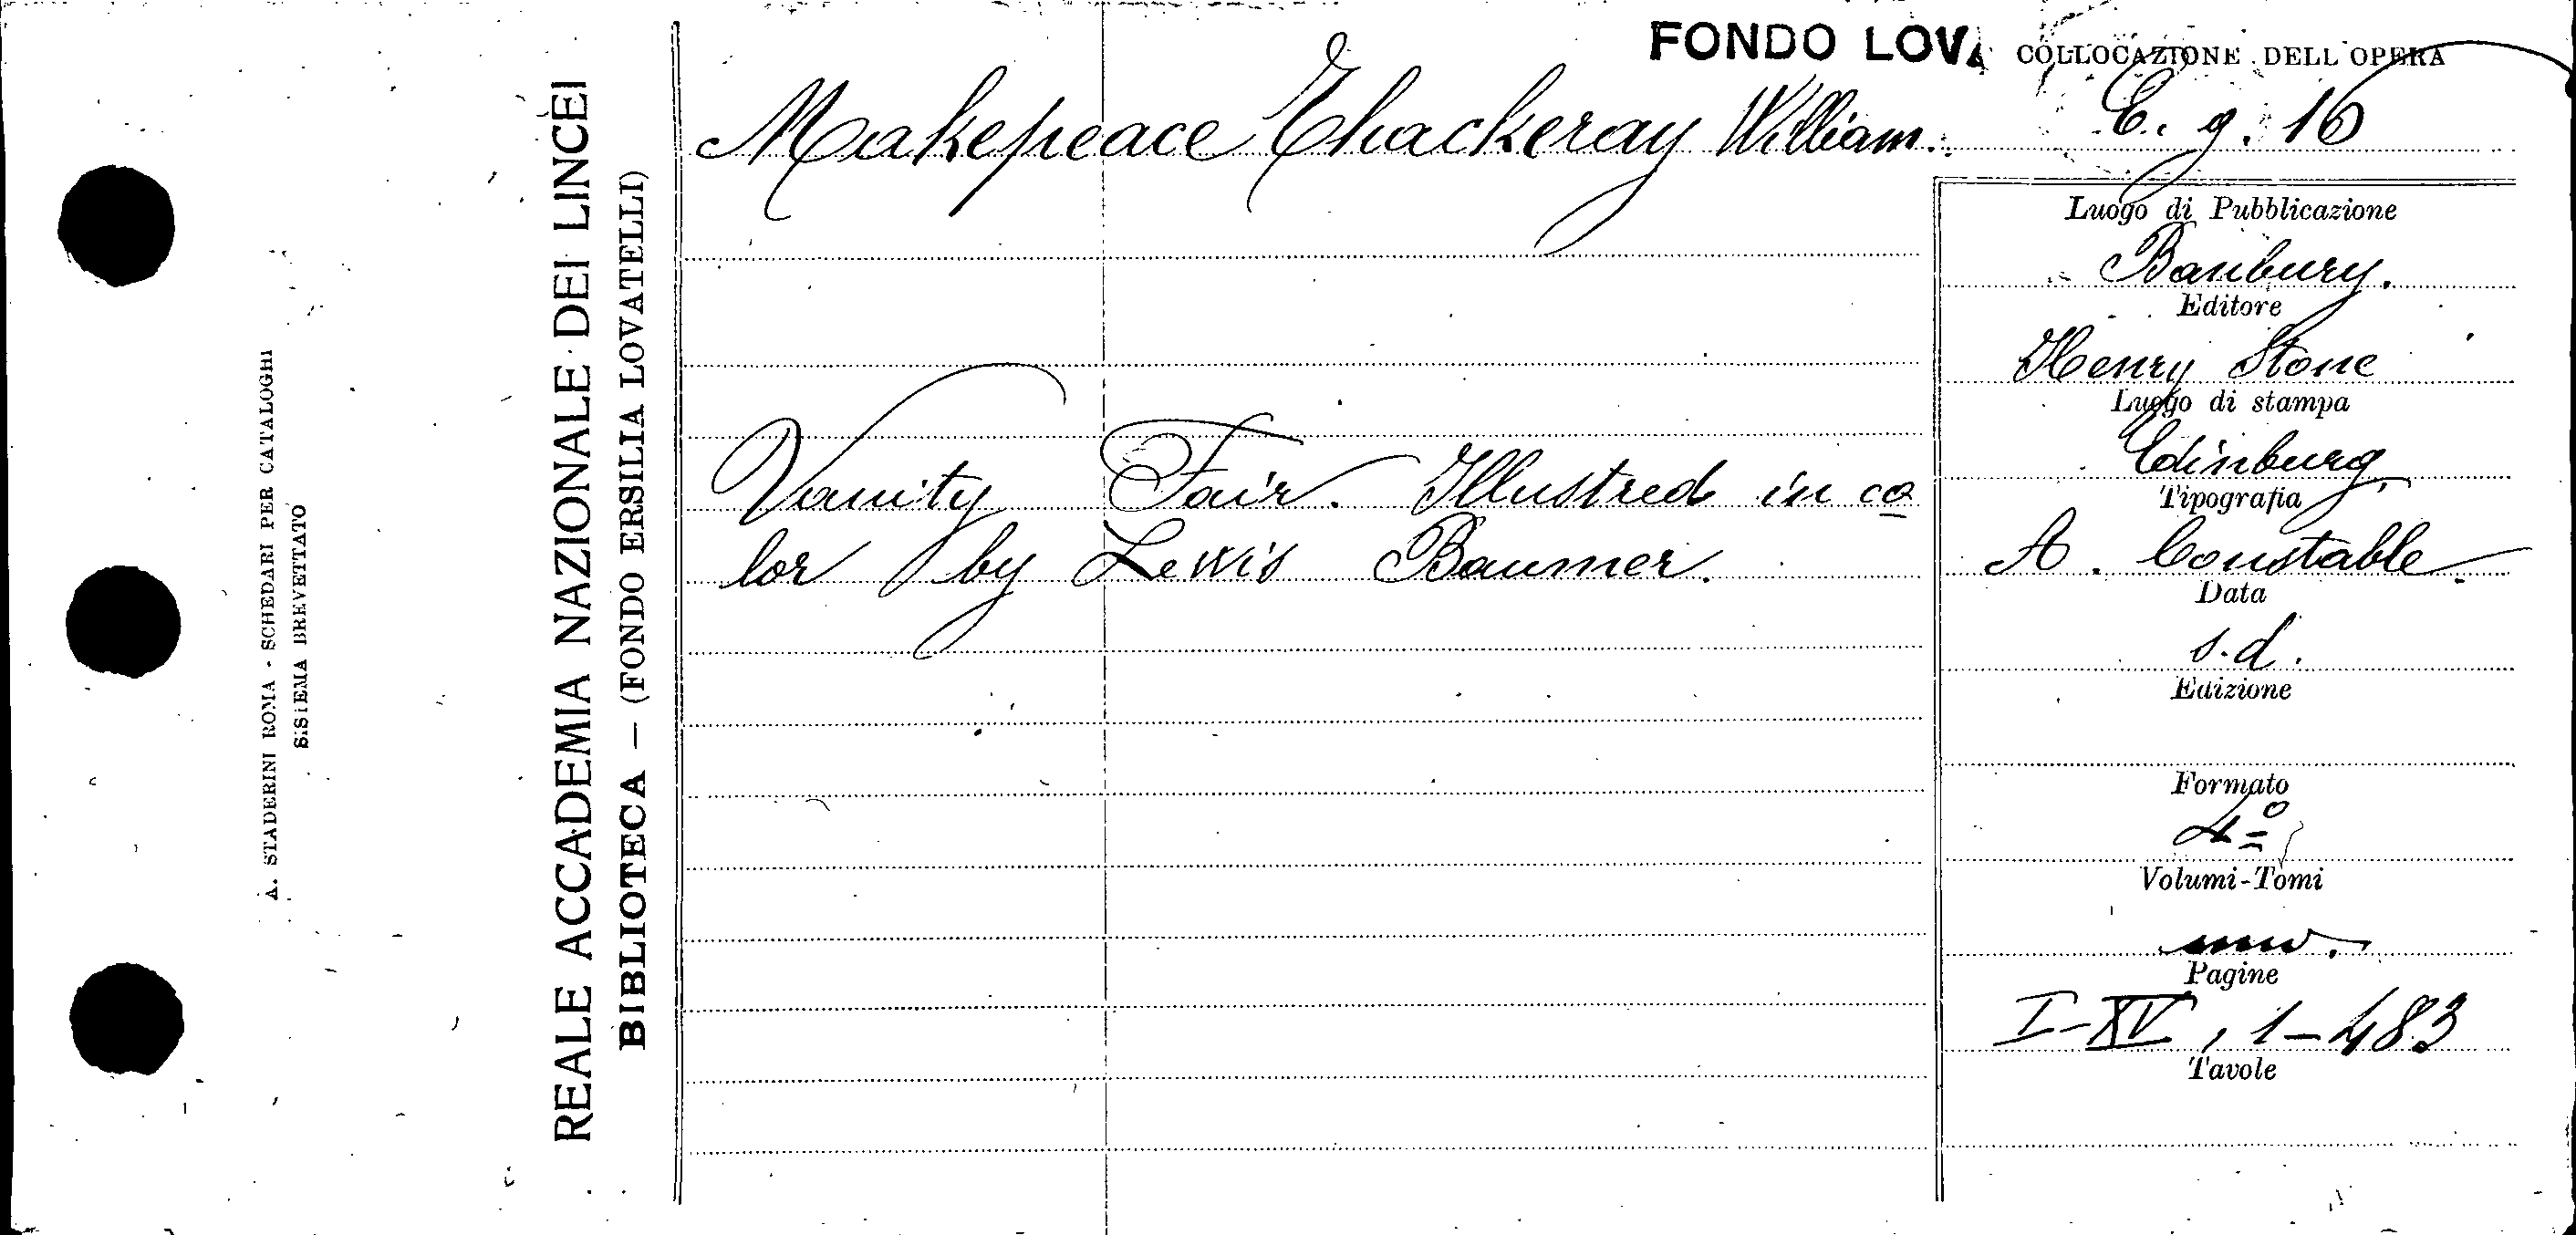 A. STADERINI ROMA - SCHEDARI PER CATALOGHI
SISTEMA BREVETTATO
REALE ACCADEMIA NAZIONALE DEI LINCEI
BIBLIOTECA — (FONDO ERSILIA LOVATELLI)
FONDO LOVA
COLLOCAZIONE DELL'OPERA
Makepeace Thackeray William.
E. g. 16
Vanity Fair. Illustred in co
lor by Lewis Baumer.
Luogo di Pubblicazione
Banbury.
Editore
Henry Stone
Luogo di stampa
Edinburg
Tipografia
A. Constable.
Data
s.d.
Edizione
Formato
4º
Volumi-Tomi
Pagine
I-XV, 1-483
Tavole